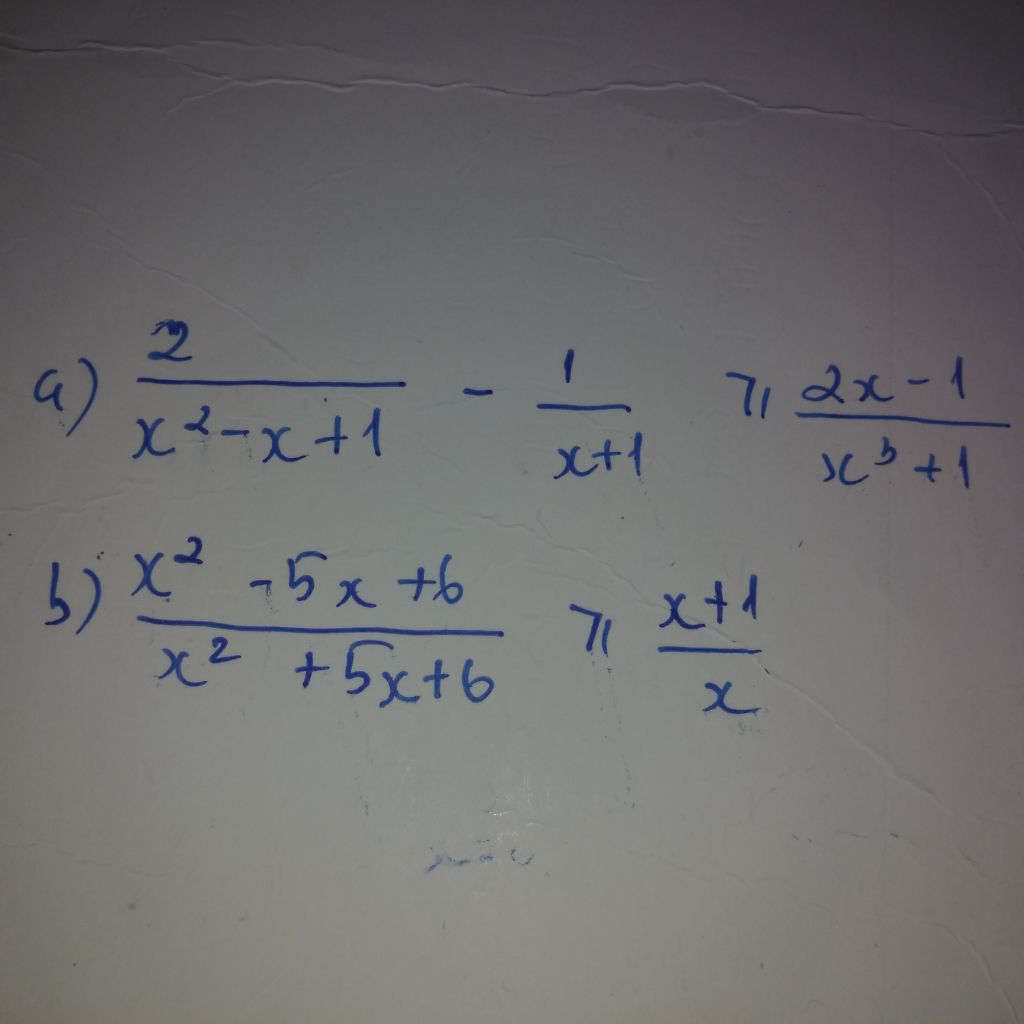 a) \frac{2}{x^2-x+1} - \frac{1}{x+1} ⩾ \frac{2x-1}{x^3+1}
b) \frac{x^2-5x+6}{x^2+5x+6} ⩾ \frac{x+1}{x}